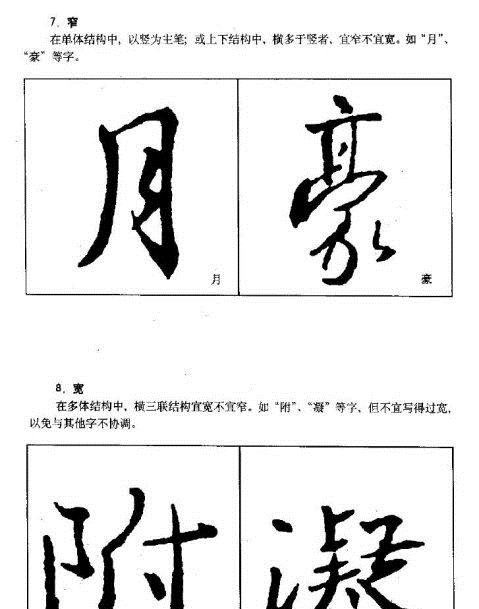 7．窄
在单体结构中，以竖为主笔；或上下结构中、横多于竖者、宜窄不宜宽。如“月”、
“豪”等字。
月 豪
月 豪
8．宽
在多体结构中，横三联结构宜宽不宜窄。如“附”、“凝”等字，但不宜写得过宽，
以免与其他字不协调。
附 凝